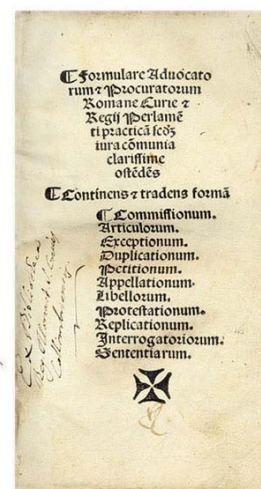 ⁌ Formulare Aduocato
rum ⁊ Procuratorum
Romane Curie ⁊
Regij Perlamē
ti practicā scōꝫ
iura cōmunia
clarissime
ostēdēs
⁌ Continens ⁊ tradens formā
⁌ Commissionum.
Articulorum.
Exceptionum.
Duplicationum.
Petitionum.
Appellationum.
Libellorum.
Protestationum.
Replicationum.
Interrogatoriorum.
Sententiarum.
Ex Bibliotheca